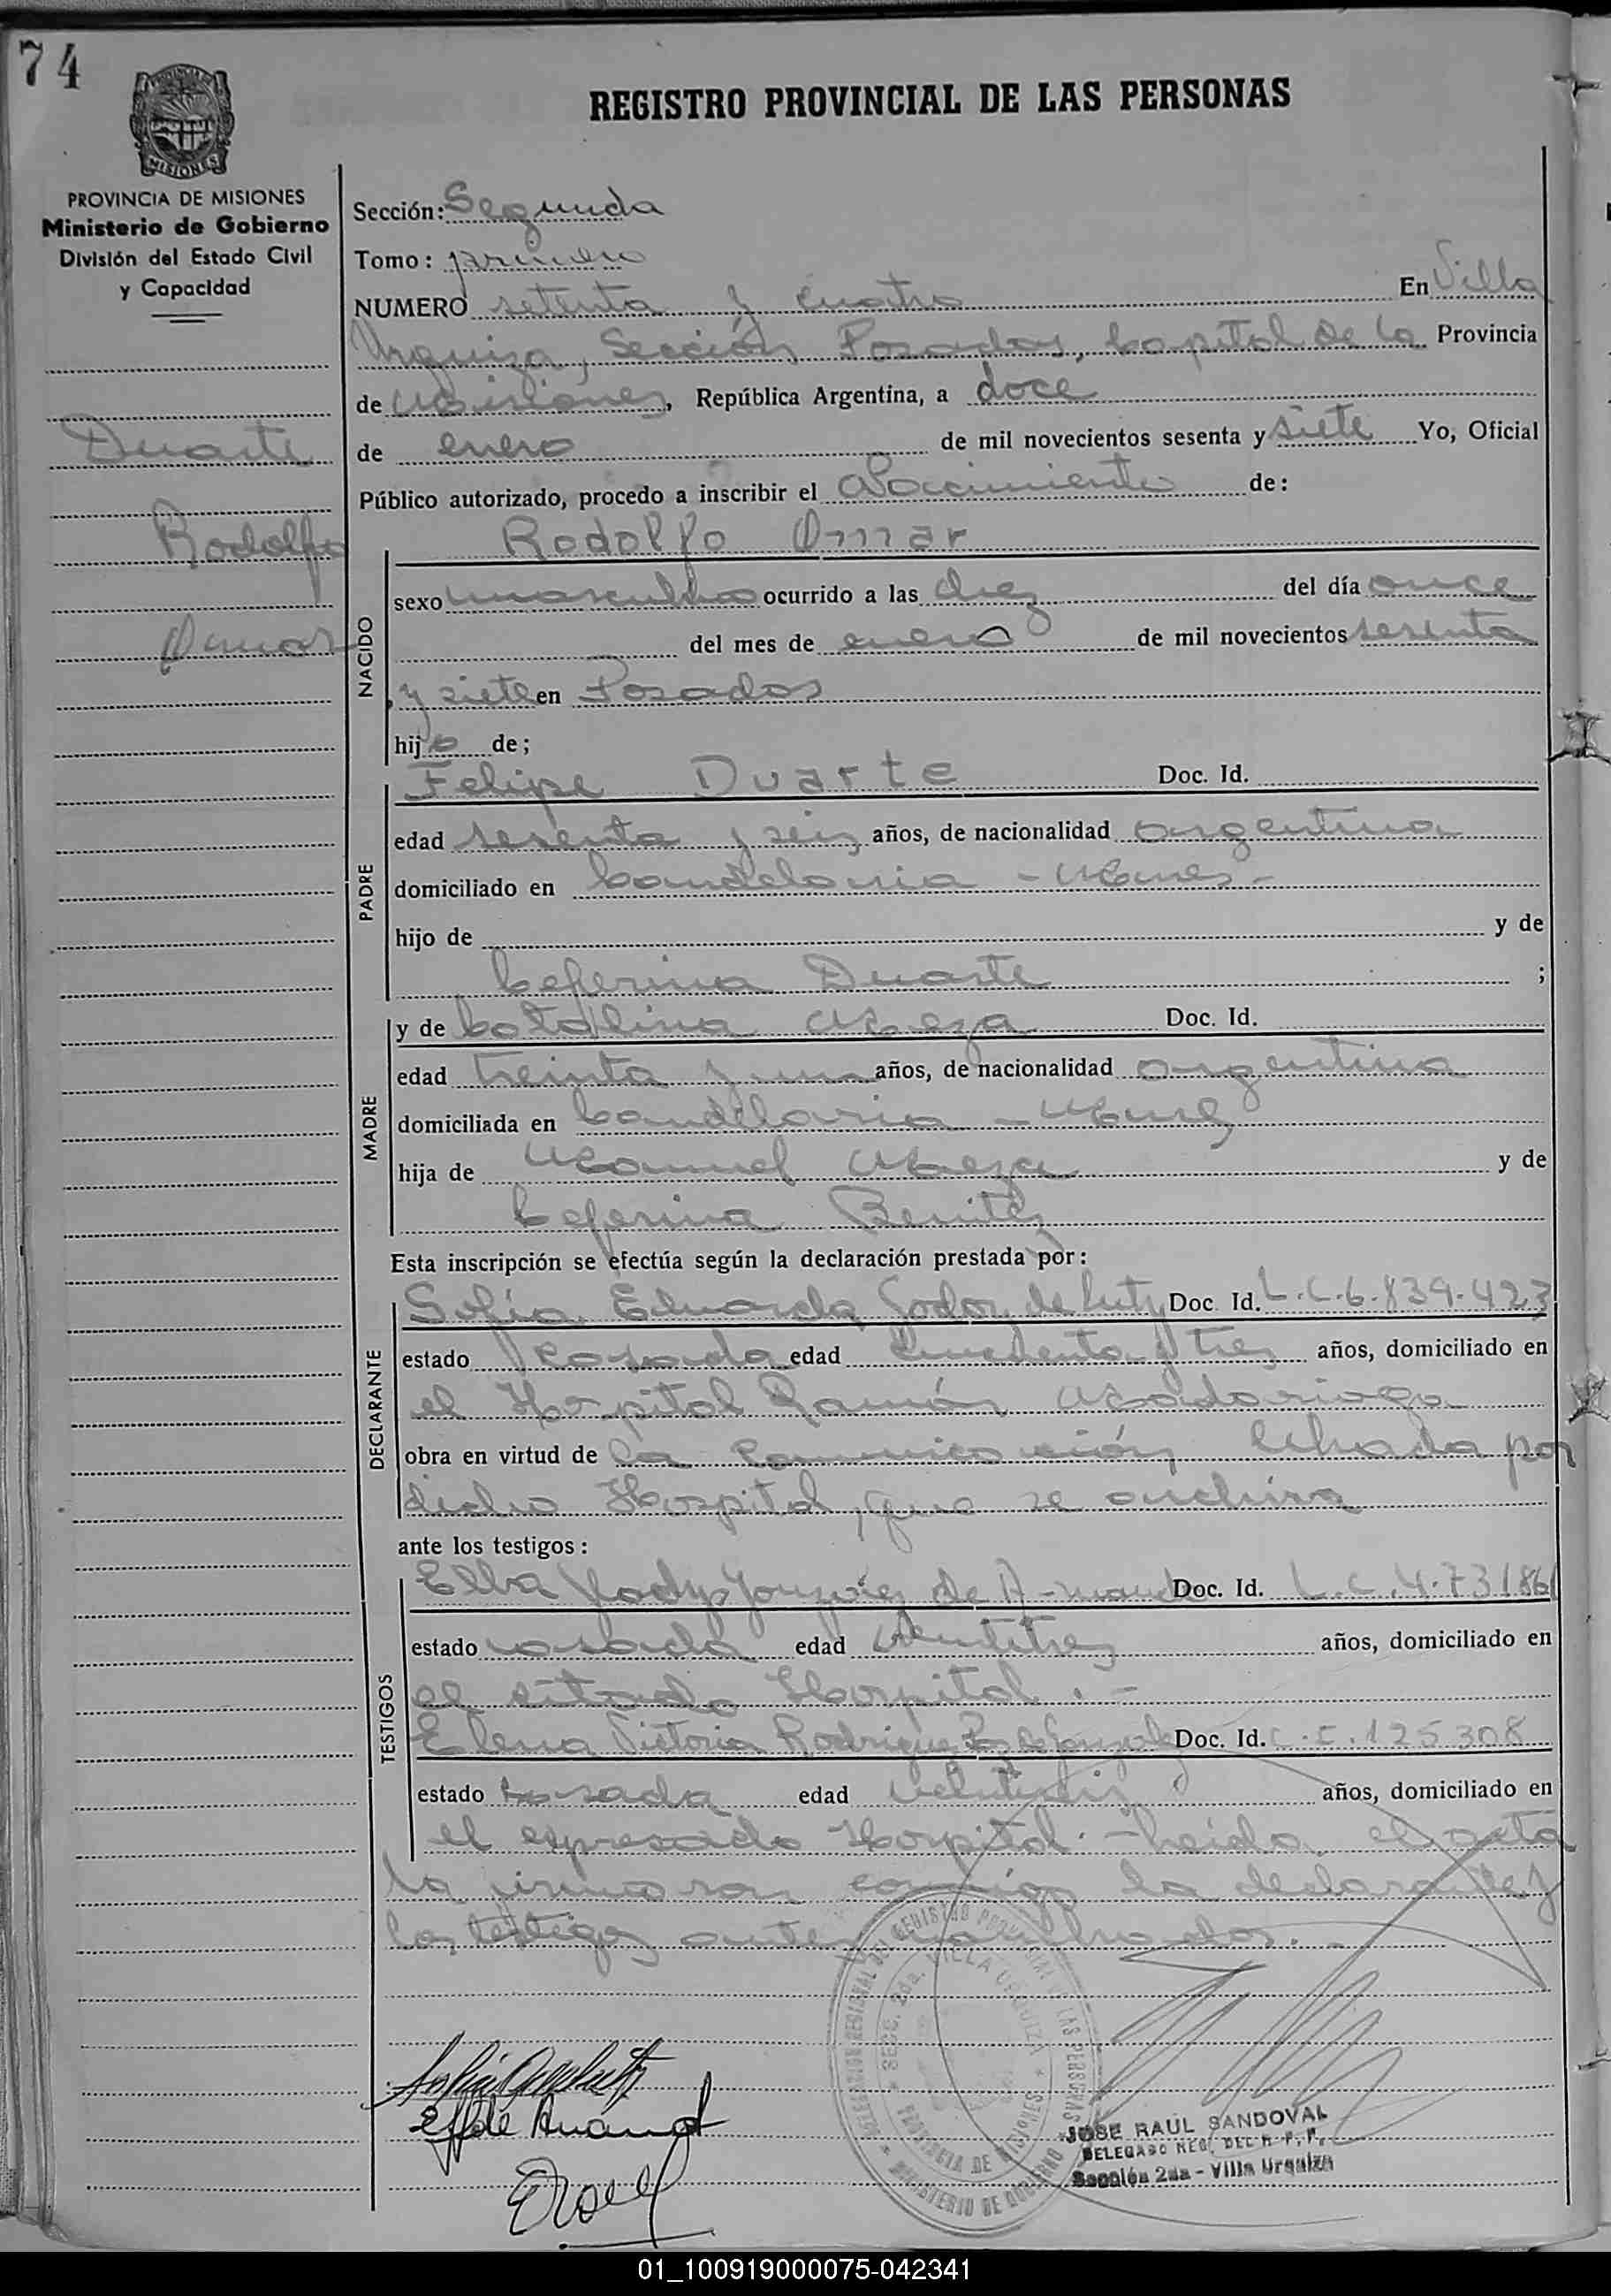 74
REGISTRO PROVINCIAL DE LAS PERSONAS
MISIONES
PROVINCIA DE MISIONES
Ministerio de Gobierno
División del Estado Civil
y Capacidad
Duarte
Rodolfo
Omar
Sección: Segunda
Tomo: primero
NUMERO setenta y cuatro En Villa
Urquiza, Sección Posadas, Capital de la Provincia
de Misiones, República Argentina, a doce
de enero de mil novecientos sesenta y siete Yo, Oficial
Público autorizado, procedo a inscribir el Nacimiento de:
Rodolfo Omar
NACIDO
sexo masculino ocurrido a las diez del día once
del mes de enero de mil novecientos sesenta
y siete en Posadas
hijo de;
PADRE
Felipe Duarte Doc. Id.
edad sesenta y seis años, de nacionalidad argentina
domiciliado en Candelaria - Mnes -
hijo de y de
Ceferina Duarte ;
MADRE
y de Catalina Meza Doc. Id.
edad treinta y un años, de nacionalidad argentina
domiciliada en Candelaria - Mnes
hija de Manuel Meza y de
Ceferina Benitez
Esta inscripción se efectúa según la declaración prestada por:
DECLARANTE
Sofía Eduarda Godoy de Doc. Id. L.C. 6.839.423
estado casada edad años, domiciliado en
el Hospital Ramón Madariaga
obra en virtud de la comunicación librada por
dicho Hospital, que se archiva
ante los testigos:
TESTIGOS
Elba Doc. Id. L.C. 4.731861
estado casada edad veintitres años, domiciliado en
el citado Hospital . -
Elena Victoria Rodriguez Doc. Id. 125.308
estado casada edad años, domiciliado en
el expresado Hospital. - Leída el acta
la firmaron conmigo la declarante y
los testigos antes nombrados. -
DELEGACION REGIONAL DEL REGISTRO PROVINCIAL DE LAS PERSONAS
SECC. 2da. VILLA URQUIZA
PROVINCIA DE MISIONES
MINISTERIO DE GOBIERNO
JOSE RAUL SANDOVAL
DELEGADO REG. DEL R. P. P.
Sección 2da - Villa Urquiza
01_100919000075-042341